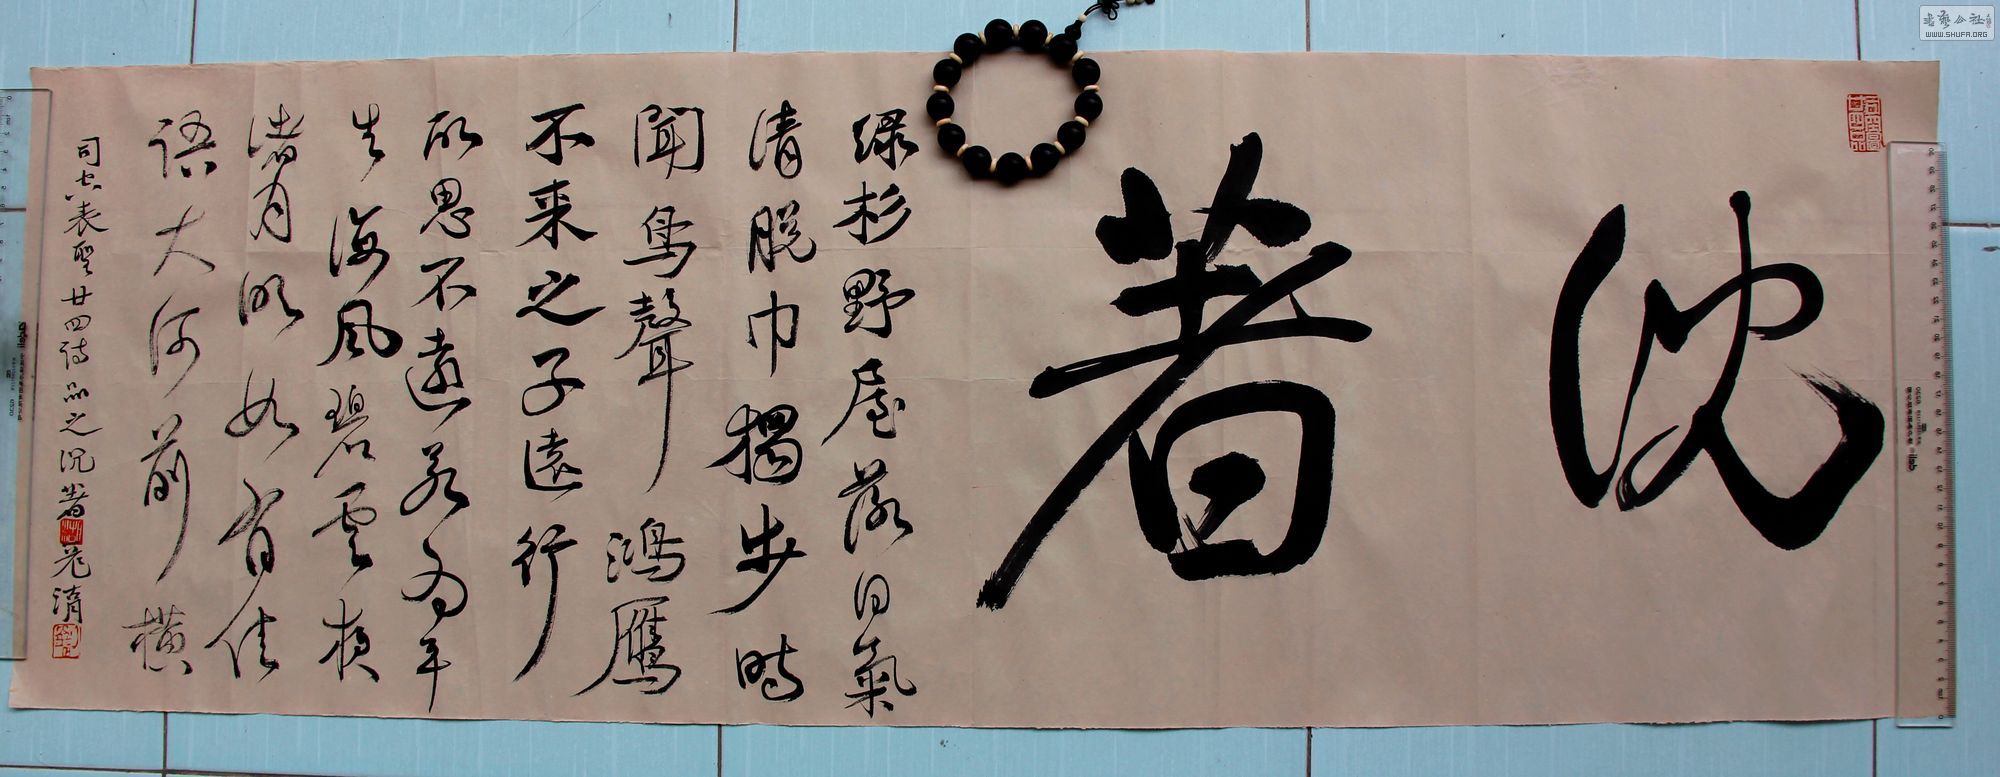 沈著
绿杉野屋落日氣
清脱巾獨步时
聞鸟聲鸿雁
不来之子遠行
所思不遠若为平
生海风碧雲夜
渚月明如有佳
語大河前横
司空表聖廿四诗品之沉著
書藝公社
WWW.SHUFA.ORG